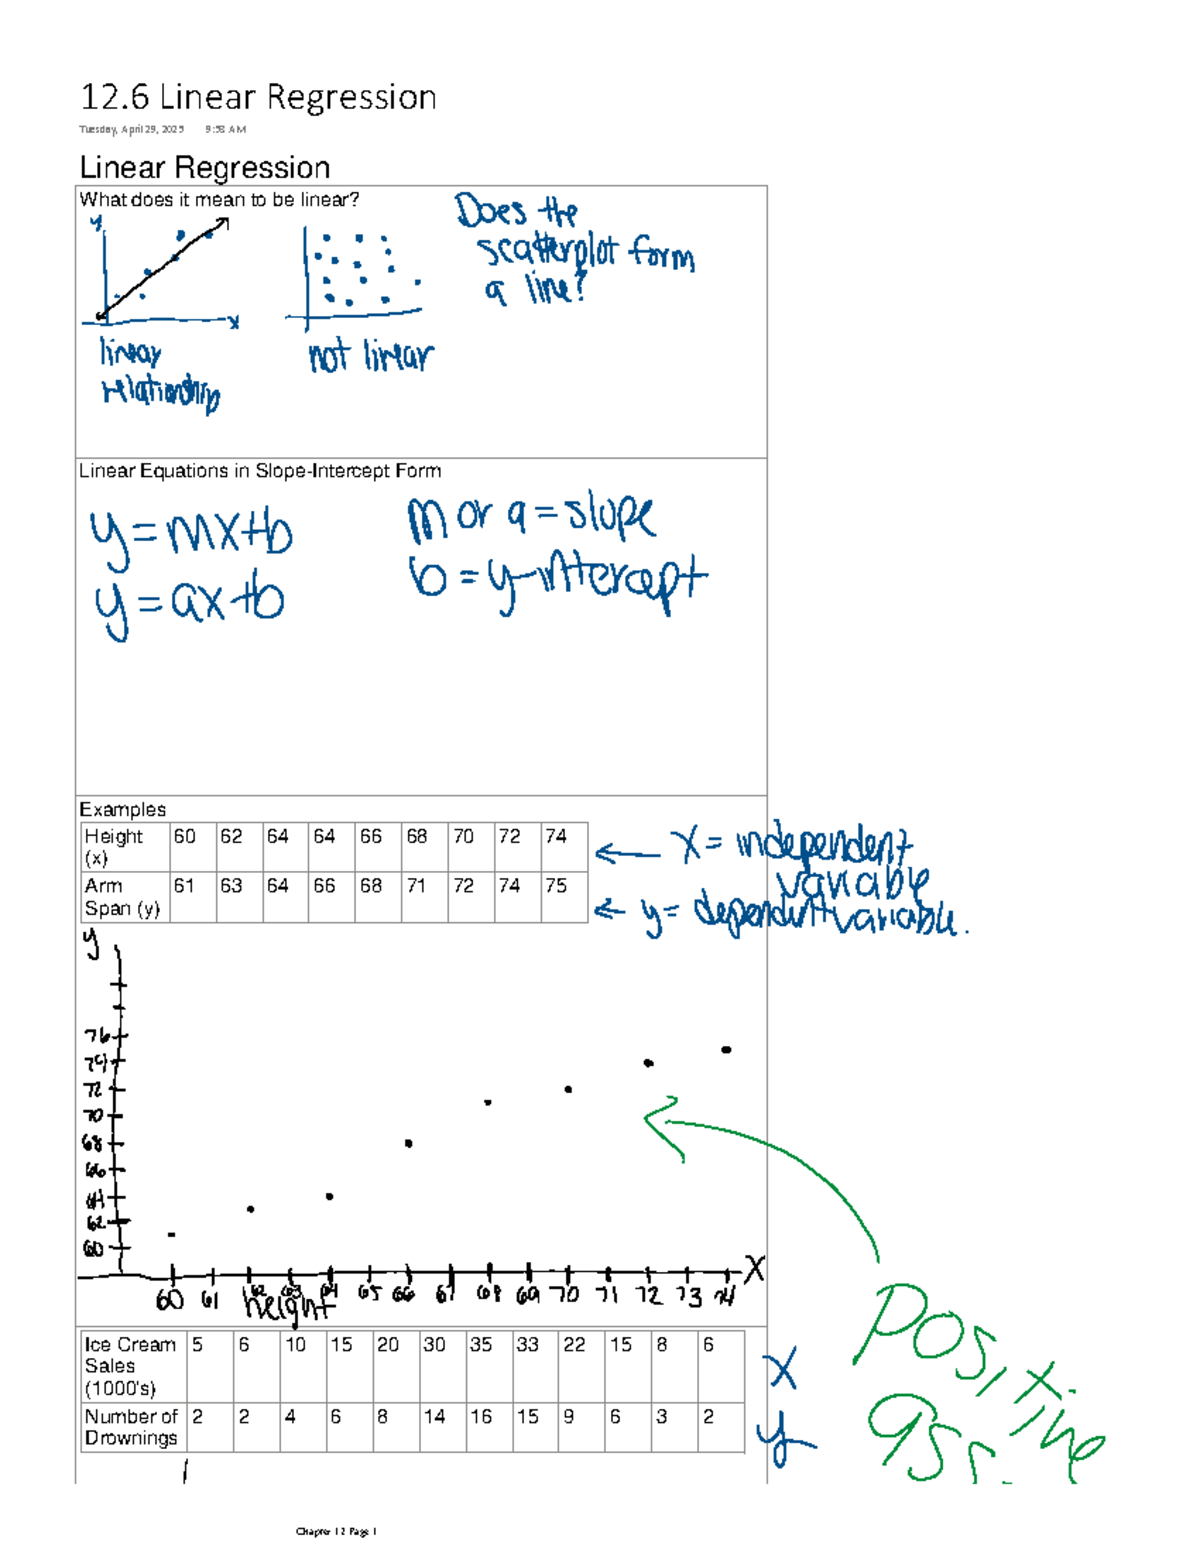 12.6 Linear Regression
Tuesday, April 29, 2025 9:58 AM
Linear Regression
What does it mean to be linear?
y
x
linear
relationship
not linear
Does the
scatterplot form
a line?
Linear Equations in Slope-Intercept Form
y = mx+b
y = ax+b
m or a = slope
b = y-intercept
Examples
Height (x) 60 62 64 64 66 68 70 72 74
Arm Span (y) 61 63 64 66 68 71 72 74 75
← x = independent
variable
← y = dependent variable.
y
76
74
72
70
68
66
64
62
60
60 61 62 63 64 65 66 67 68 69 70 71 72 73 74
x
height
positive
ass.
Ice Cream Sales (1000's) 5 6 10 15 20 30 35 33 22 15 8 6
x
Number of Drownings 2 2 4 6 8 14 16 15 9 6 3 2
y
Chapter 12 Page 1